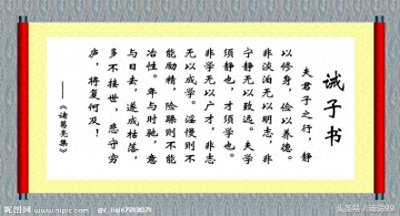 诫子书
夫君子之行，静
以修身，俭以养德。
非淡泊无以明志，非
宁静无以致远。夫学
须静也，才须学也。
非学无以广才，非志
无以成学。淫慢则不
能励精，险躁则不能
冶性。年与时驰，意
与日去，遂成枯落，
多不接世，悲守穷
庐，将复何及！
——《诸葛亮集》
昵图网
www.nipic.com By: liqin7213071
头条号